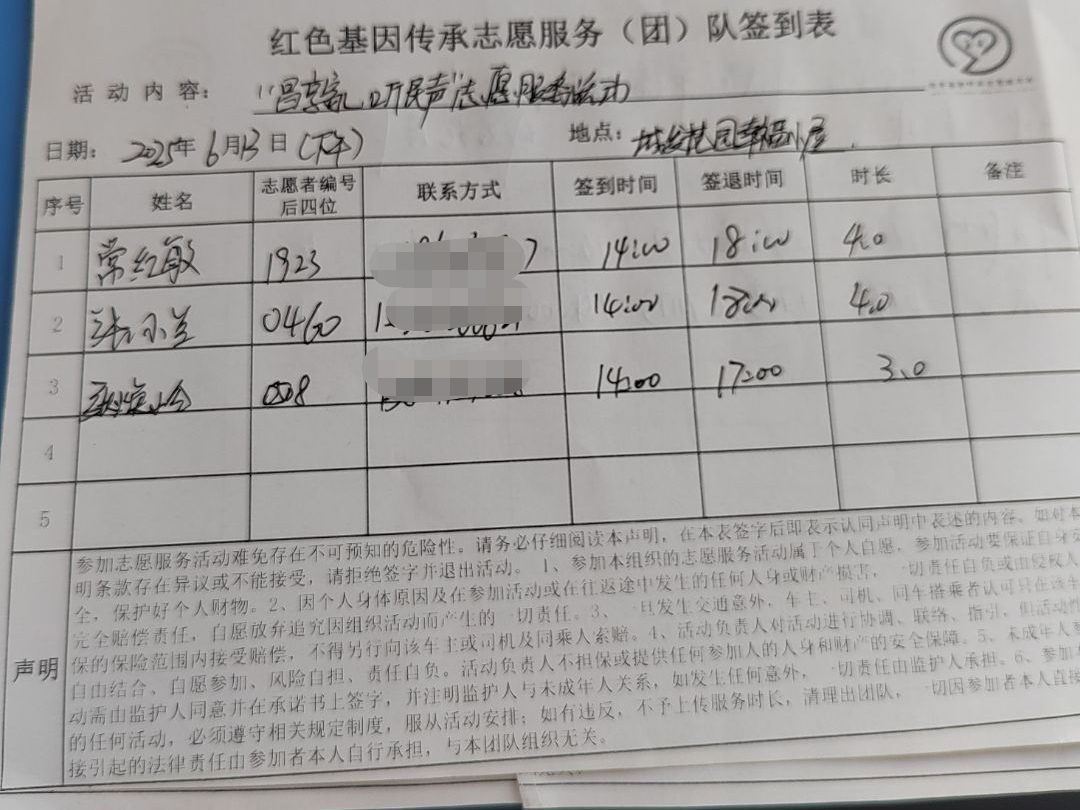 红色基因传承志愿服务（团）队签到表
活动内容： 听民声"志愿服务活动
日期： 2025年6月13日(下午) 地点： 花园幸福小屋
序号 姓名 志愿者编号后四位 联系方式 签到时间 签退时间 时长 备注
1 常红敏 1923 14:00 18:00 4.0
2 张小兰 0460 14:00 18:00 4.0
3 14:00 17:00 3.0
4
5
声明
参加志愿服务活动难免存在不可预知的危险性。请务必仔细阅读本声明，在本表签字后即表示认同声明中表述的内容。如对本
明条款存在异议或不能接受，请拒绝签字并退出活动。1、参加本组织的志愿服务活动属于个人自愿，参加活动要保证自身安
全，保护好个人财物。2、因个人身体原因及在参加活动或在往返途中发生的任何人身或财产损害，一切责任自负或由侵权人
完全赔偿责任，自愿放弃追究因组织活动而产生的一切责任。3、一旦发生交通意外，车主、司机、同车搭乘者认可只在该车
保的保险范围内接受赔偿，不得另行向该车主或司机及同乘人索赔。4、活动负责人对活动进行协调、联络、指引，但活动性
自由结合、自愿参加、风险自担、责任自负。活动负责人不担保或提供任何参加人的人身和财产的安全保障。5、未成年人参
动需由监护人同意并在承诺书上签字，并注明监护人与未成年人关系，如发生任何意外，一切责任由监护人承担。6、参加本
的任何活动，必须遵守相关规定制度，服从活动安排；如有违反，不予上传服务时长，清理出团队，一切因参加者本人直接
接引起的法律责任由参加者本人自行承担，与本团队组织无关。